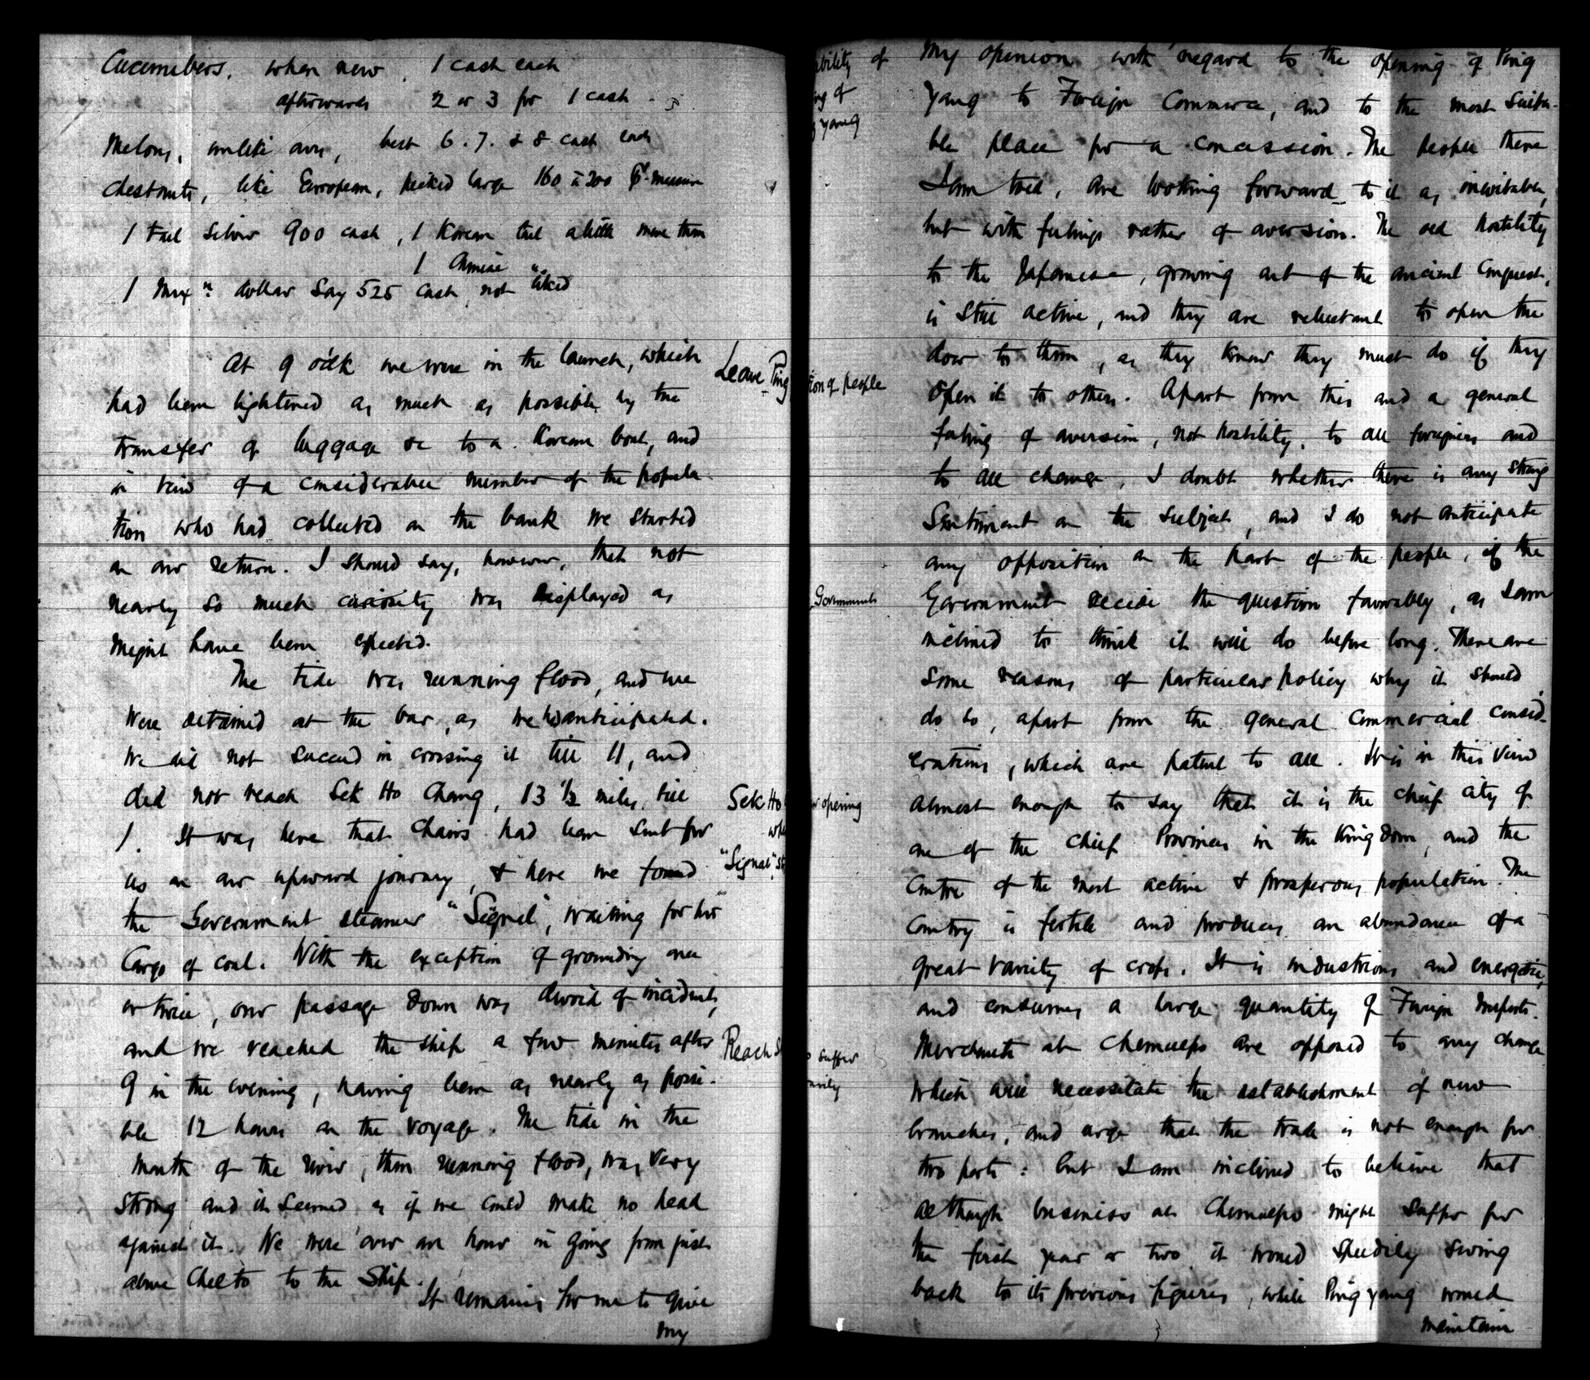 Cucumbers, when new, 1 cash each
afterwards 2 or 3 for 1 cash.
Melons, unlike ours, best 6. 7. & 8 cash each
Chestnuts, like European, picked large 160 à 200 measure
1 Tael Silver 900 cash, 1 Korean tael a little more than
1 Chinese
1 Mexn. dollar say 525 cash, not liked
At 9 o'clk we were in the launch, which
had been lightened as much as possible by the
transfer of luggage &c to a Korean boat, and
in view of a considerable number of the popula-
tion who had collected on the bank we started
on our return. I should say, however, that not
nearly so much curiosity was displayed as
might have been expected.
The tide was running flood, and we
were detained at the bar, as we anticipated.
We did not succeed in crossing it till 11, and
did not reach Sek Ho Chang, 13 1/2 miles, till
1. It was here that chairs had been sent for
us on our upward journey, & here we found
the Government steamer "Signal", waiting for her
cargo of coal. With the exception of grounding once
or twice, our passage down was devoid of incident,
and we reached the ship a few minutes after
9 in the evening, having been as nearly as possi-
ble 12 hours on the voyage. The tide in the
mouth of the river, then running flood, was very
strong and it seemed as if we could make no head
against it. We were over an hour in going from just
above Chelto to the Ship.
It remains for me to give
my
Leave Ping
Sek Ho
"Signal"
Reach
ability of
ing of
yang
tion of people
Government
opening
suffer
My opinion with regard to the opening of Ping
yang to Foreign Commerce, and to the most suita-
ble place for a concession. The people there
I am told, are looking forward to it as inevitable,
but with feelings rather of aversion. The old hostility
to the Japanese, growing out of the ancient conquest,
is still active, and they are reluctant to open the
door to them, as they know they must do if they
open it to others. Apart from this and a general
feeling of aversion, not hostility, to all foreigners and
to all change, I doubt whether there is any strong
sentiment on the subject, and I do not anticipate
any opposition on the part of the people, if the
Government decide the question favorably, as I am
inclined to think it will do before long. There are
some reasons of particular policy why it should
do so, apart from the general commercial consid-
erations, which are patent to all. It is in this view
almost enough to say that it is the chief city of
one of the chief Provinces in the Kingdom, and the
centre of the most active & prosperous population. The
country is fertile and produces an abundance of a
great variety of crops. It is industrious and energetic,
and consumes a large quantity of Foreign Imports.
Merchants at Chemulpo are opposed to any change
which will necessitate the establishment of new
branches, and urge that the trade is not enough for
two ports: but I am inclined to believe that
although business at Chemulpo might suffer for
the first year or two it would speedily swing
back to its previous figures, while Ping yang would
maintain